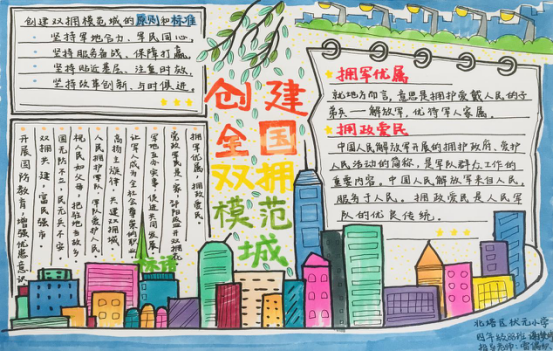 创建双拥模范城的原则和标准
· 坚持军地合力、军民同心。
· 坚持服务备战、保障打赢。
· 坚持贴近基层、注重时效。
· 坚持改革创新、与时俱进。
创建
全国
双拥
模范
城
拥军优属
就地方而言,意思是拥护爱戴人民的子
弟兵——解放军,优待军人家属。
拥政爱民
中国人民解放军开展的拥护政府、爱护
人民活动的简称,是军队群众工作的
重要内容。中国人民解放军来自人民,
服务于人民。拥政爱民是人民军
队的优良传统。
拥军优属,拥政爱民。
党政军民是一家,
军地互办实事,促进共同发展。
让军人成为全社会尊崇的职业
高扬主旋律,共建双拥城
人民拥护军队,军队爱护人民
视人民如父母,把驻地当故乡
国无防不立,民无兵不安。
双拥共建,富民强市。
开展国防教育,增强忧患意识
标语
北塔区状元小学